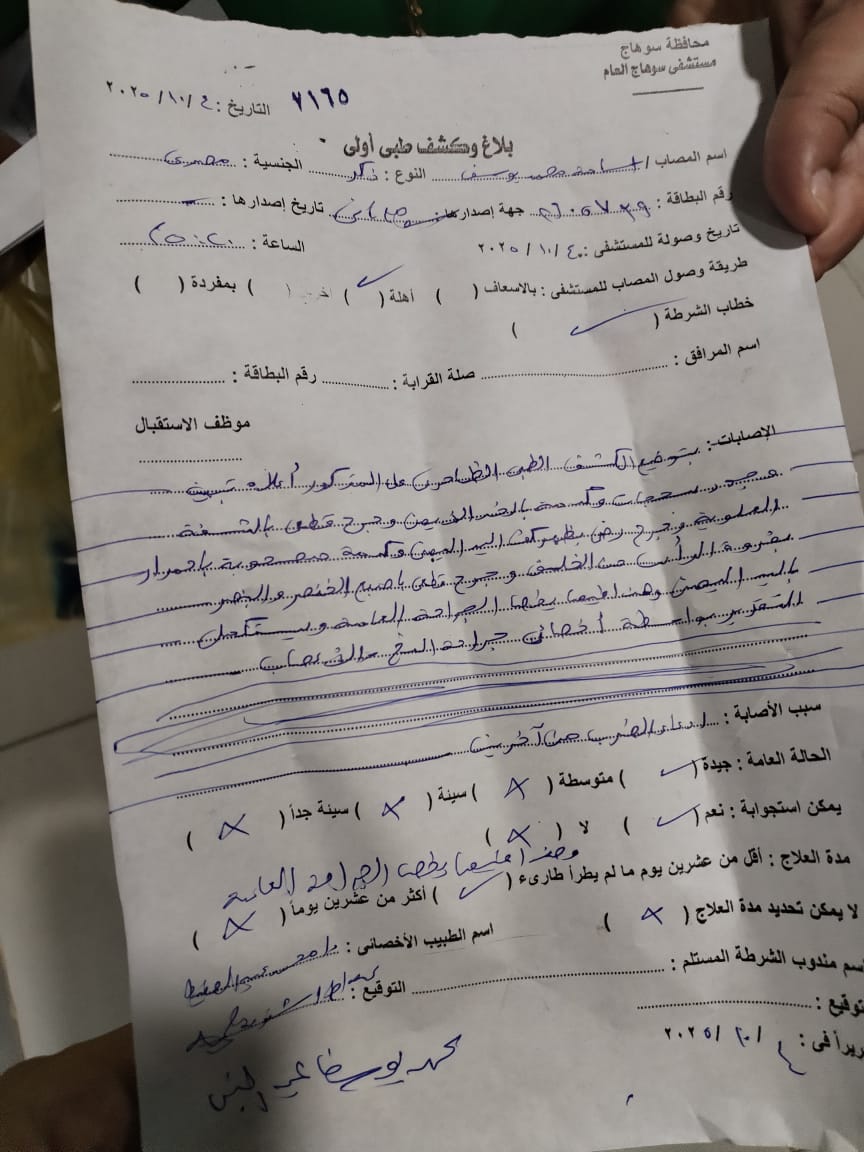 محافظة سوهاج
مستشفى سوهاج العام
التاريخ : ٤ / ١٠ / ٢٠٢٥ ٧١٦٥
بلاغ وكشف طبي أولى
اسم المصاب / اسامة محمد يوسف النوع : ذكر الجنسية : مصرى
رقم البطاقة : جهة إصدارها : تاريخ إصدارها :
تاريخ وصولة للمستشفى : ٤ / ١٠ / ٢٠٢٥ الساعة :
طريقة وصول المصاب للمستشفى : بالاسعاف ( ) أهلة ( ✓ ) أخرى ( ) بمفردة ( )
خطاب الشرطة ( ✓ )
اسم المرافق : صلة القرابة : رقم البطاقة :
موظف الاستقبال
الإصابات : بتوقيع الكشف الطبى الظاهرى على المذكور أعلاه تبين
وجود سحجات وكدمة بالخد الأيمن وجرح قطعى بالشفة
العلوية وجرح رضى بظهر كف اليد اليمين وكدمة مصحوبة باحمرار
بفروة الرأس من الخلف وجرح قطعى باصبع الخنصر والبنصر
باليد اليمين وهذا طبيا يخص الجراحة العامة ويستكمل
التقرير بواسطة أخصائى جراحة المخ والاعصاب
سبب الأصابة : ادعاء الضرب من آخرين
الحالة العامة : جيدة ( ✓ ) متوسطة ( × ) سيئة ( × ) سيئة جداً ( × )
يمكن استجوابة : نعم ( ✓ ) لا ( × )
وهذا طبيا يخص الجراحة العامة
مدة العلاج : أقل من عشرين يوم ما لم يطرأ طارىء ( ✓ ) أكثر من عشرين يوماً ( × )
لا يمكن تحديد مدة العلاج ( × )
اسم الطبيب الأخصائى :
اسم مندوب الشرطة المستلم : التوقيع :
توقيع :
تحريراً فى : ٤ / ١٠ / ٢٠٢٥
محمد يوسف